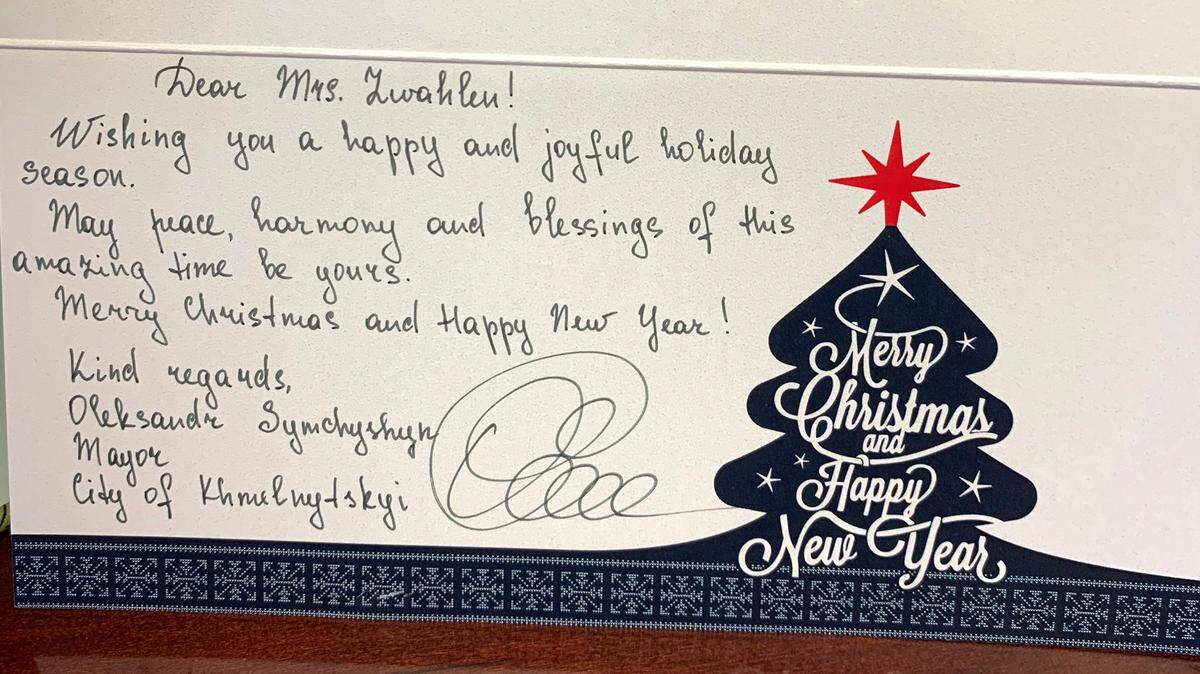 Dear Mrs. Zwahlen!
Wishing you a happy and joyful holiday
season.
May peace, harmony and blessings of this
amazing time be yours.
Merry Christmas and Happy New Year!
Kind regards,
Oleksandr Symchyshyn
Mayor
City of Khmelnytskyi
Merry
Christmas
and
Happy
New Year